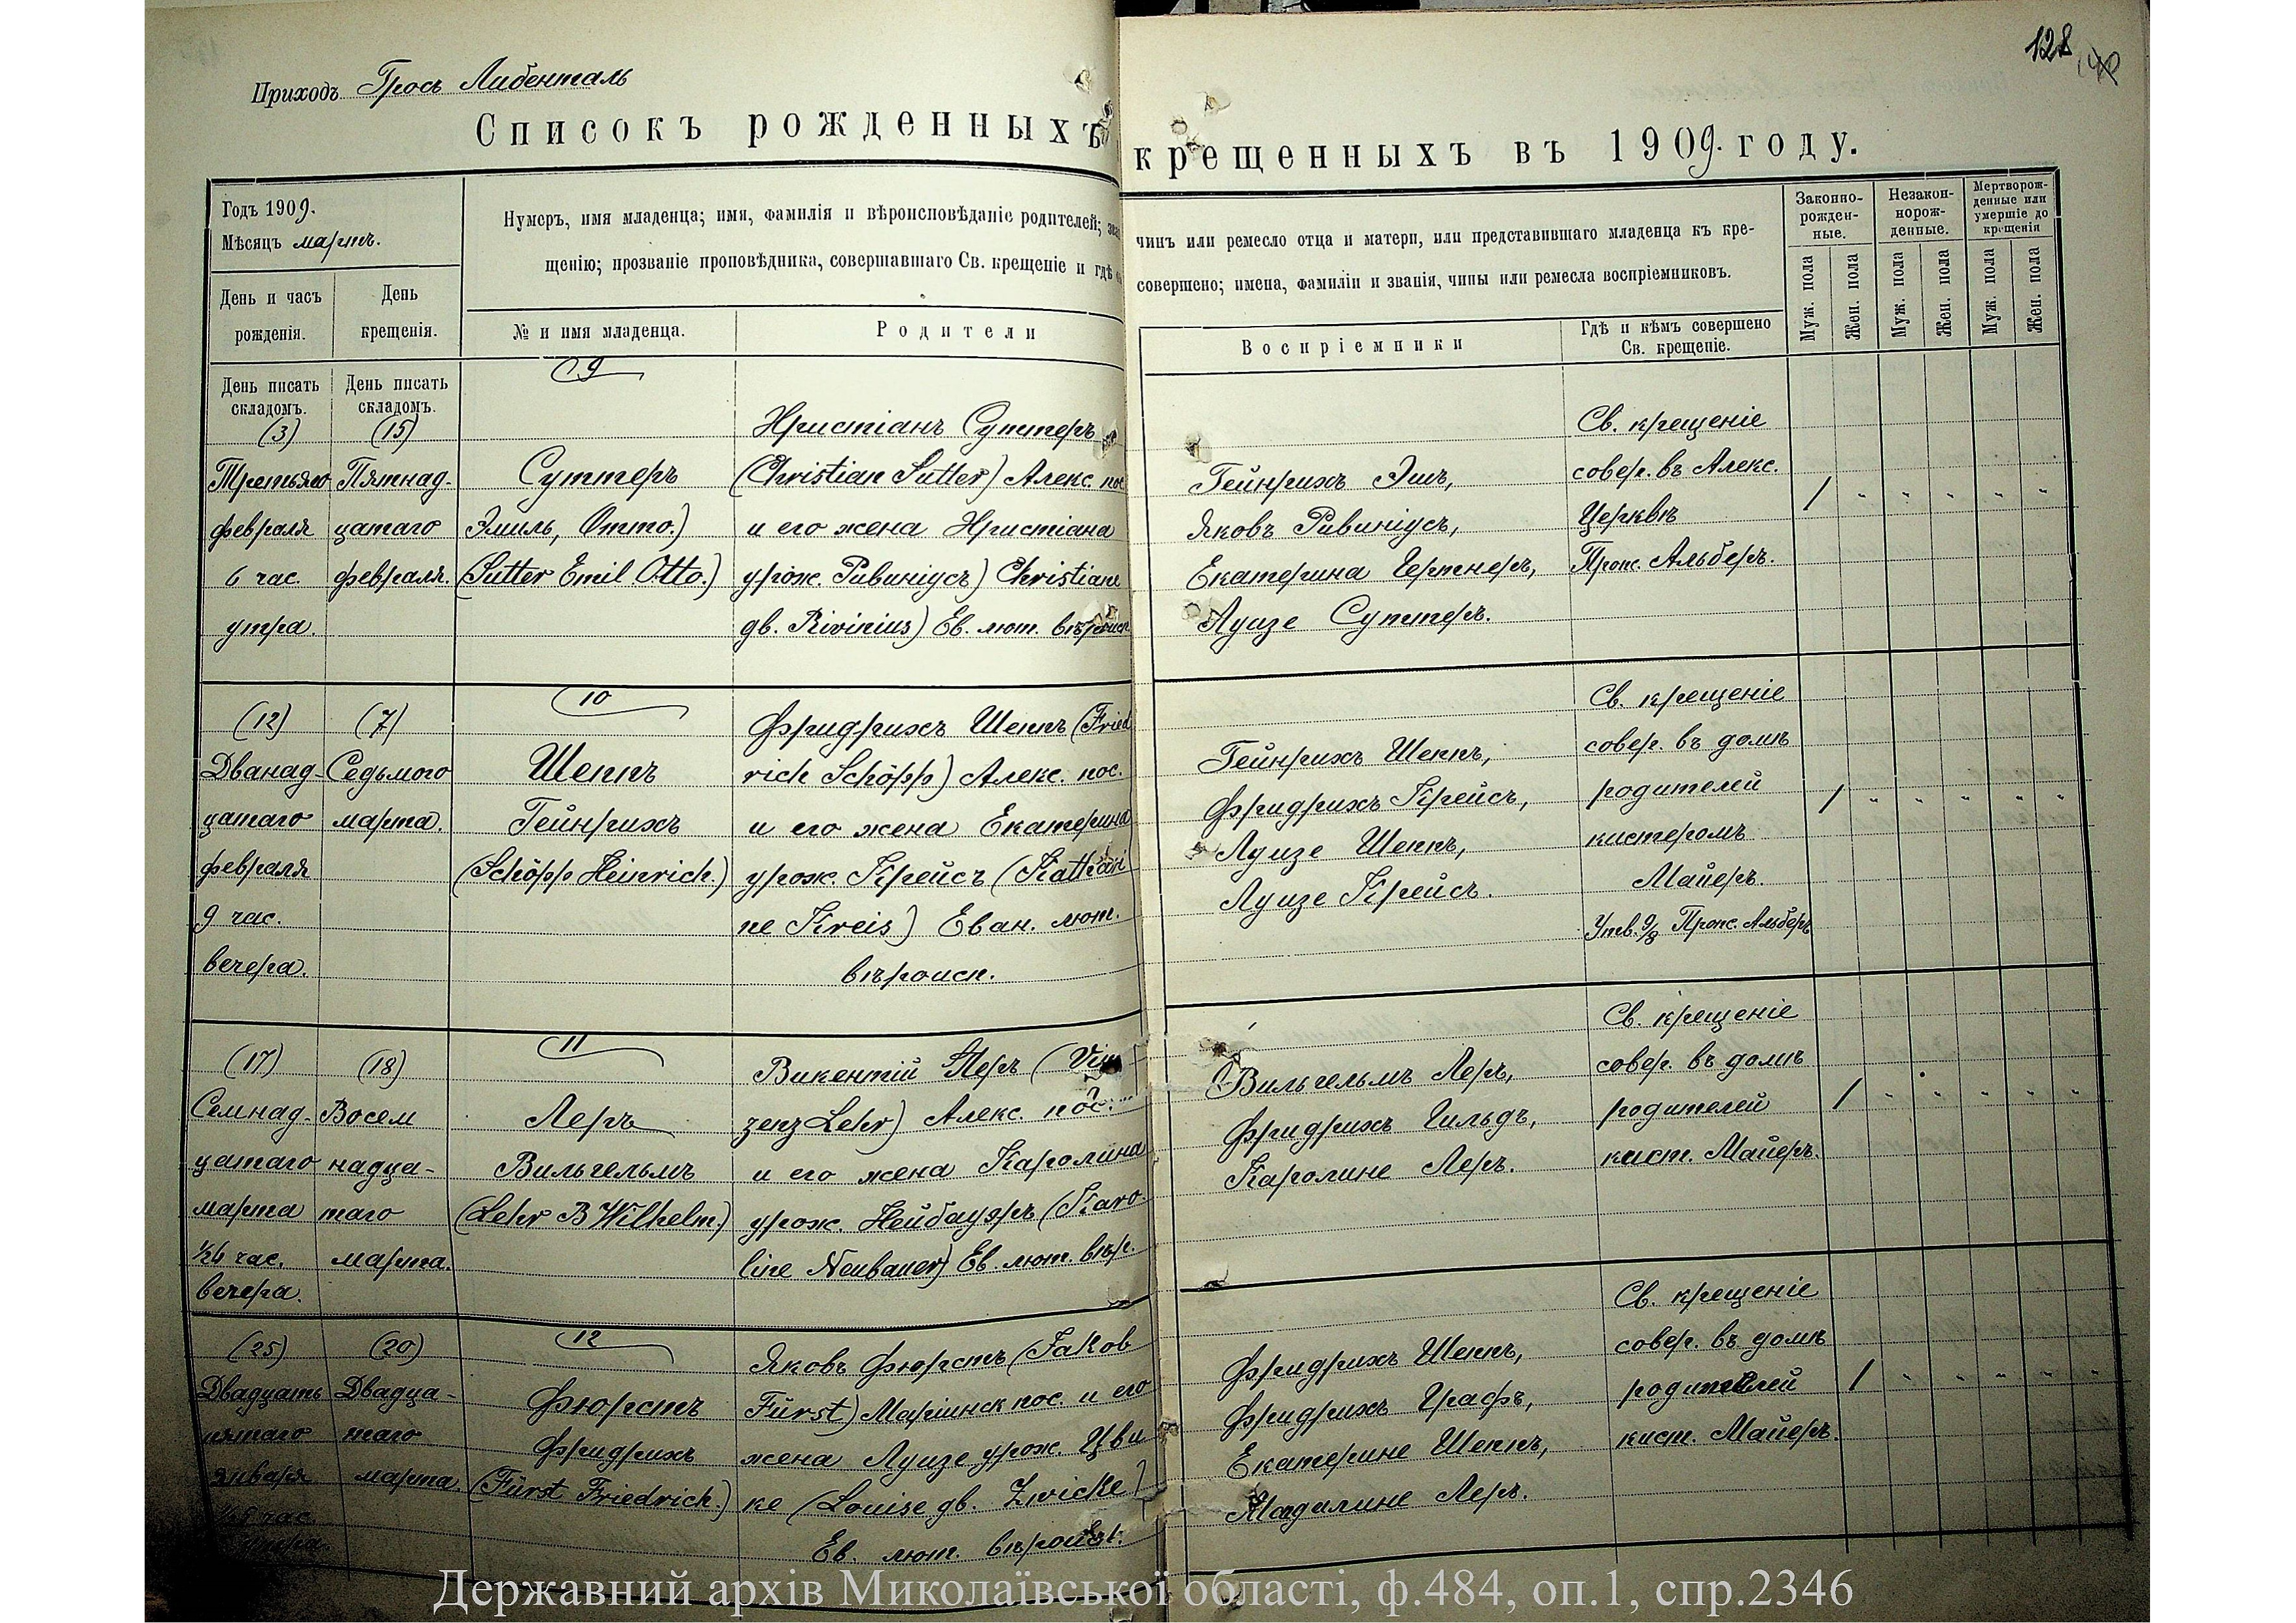 128
Приходъ Гросъ Либенталь
Списокъ рожденныхъ
крещенныхъ въ 1909. году.
Годъ 1909.
Мѣсяцъ мартъ.
День и часъ рожденія.
День крещенія.
Нумеръ, имя младенца; имя, фамилія и вѣроисповѣданіе родителей;
щенію; прозваніе проповѣдника, совершавшаго Св. крещеніе и гдѣ
чинъ или ремесло отца и матери, или представившаго младенца къ кре-
совершено; имена, фамиліи и званія, чины или ремесла воспріемниковъ.
№ и имя младенца.
Родители
Воспріемники
Гдѣ и кѣмъ совершено
Св. крещеніе.
Законно-
рожден-
ные.
Незакон-
норож-
денные.
Мертворож-
денные или
умершіе до
крещенія
Муж. пола
Жен. пола
Муж. пола
Жен. пола
Муж. пола
Жен. пола
День писать
складомъ.
День писать
складомъ.
(3)
Третьяго
февраля
6 час.
утра.
(15)
Пятнад-
цатаго
февраля.
9
Суттеръ
Эмиль, Отто.)
(Sutter Emil Otto.)
Христіанъ Суттеръ
(Christian Sutter) Алекс. пос.
и его жена Христіана
урож. Ривиніусъ) Christiane
gb. Rivinius) Ев. лют. вѣроисп.
Гейнрихъ Эшъ,
Яковъ Ривиніусъ,
Екатерина Гертнеръ,
Луизе Суттеръ.
Св. крещеніе
совер. въ Алекс.
Церквѣ
Пропс. Альберъ.
/ " " " " "
(12)
Дванад-
цатаго
февраля
9 час.
вечера.
(7)
Седьмого
марта.
10
Шеппъ
Гейнрихъ
(Schöpp Heinrich.)
Фридрихъ Шеппъ (Fried
rich Schöpp) Алекс. пос.
и его жена Екатерина
урож. Крейсъ (Kathari
ne Kreis) Еван. лют.
вѣроисп.
Гейнрихъ Шеппъ,
Фридрихъ Крейсъ,
Луизе Шеппъ,
Луизе Крейсъ.
Св. крещеніе
совер. въ домѣ
родителей
кистеромъ
Майеръ.
Утв. Пропс. Альберъ
/ " " " " "
(17)
Семнад-
цатаго
марта
½6 час.
вечера.
(18)
Восем
надца-
таго
марта.
11
Леръ
Вильгельмъ
(Lehr Wilhelm)
Викентій Леръ (Vin
zenz Lehr) Алекс. пос.
и его жена Каролина
урож. Нейбауэръ (Karo-
line Neubauer) Ев. лют. вѣр.
Вильгельмъ Леръ,
Фридрихъ Гильдъ,
Каролине Леръ.
Св. крещеніе
совер. въ домѣ
родителей
кист. Майеръ.
/ " " " " "
(25)
Двадцать
пятаго
января
час.
(20)
Двадца-
таго
марта
12
Фюрстъ
Фридрихъ
(Fürst Friedrich.)
Яковъ Фюрстъ (Jakob
Fürst) Маріинск пос. и его
жена Луизе урож. Цви
ке (Louise gb. Zwicke)
Ев. лют. вѣроисп.
Фридрихъ Шеппъ,
Фридрихъ Графъ,
Екатерине Шеппъ,
Магдалине Леръ.
Св. крещеніе
совер. въ домѣ
родителей
кист. Майеръ.
/ " " " " "
Державний архів Миколаївської області, ф.484, оп.1, спр.2346